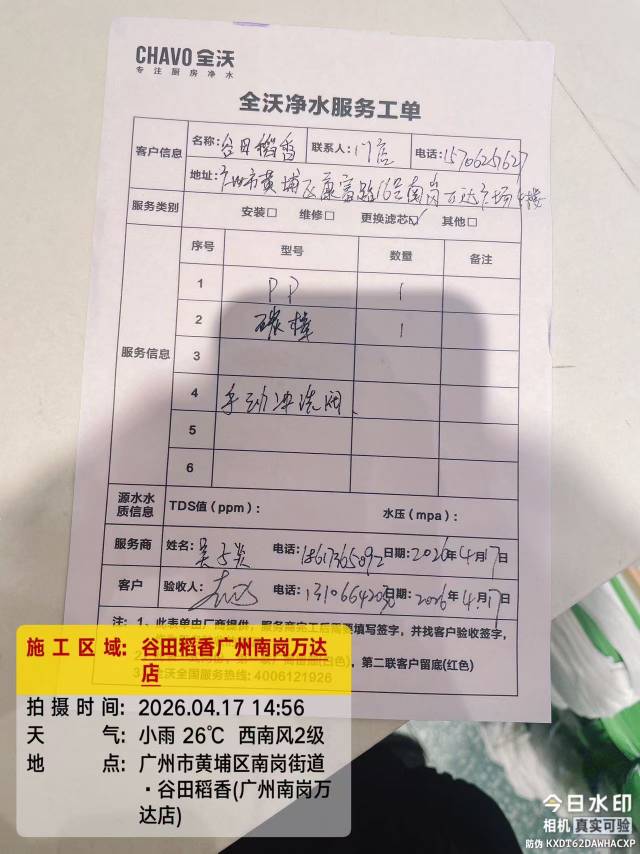 CHAVO 全沃
专注厨房净水
全沃净水服务工单
客户信息 名称: 谷田稻香 联系人: 门店 电话: 15706251627
地址: 广州市黄埔区康富路16号南岗万达广场4楼
服务类别 安装□ 维修□ 更换滤芯☑ 其他□
服务信息 序号 型号 数量 备注
1 PP 1
2 碳棒 1
3
4 手动冲洗阀、
5
6
源水水质信息 TDS值（ppm）: 水压（mpa）:
服务商 姓名: 电话: 18617365092 日期: 2026年4月17日
客户 验收人: 电话: 日期: 2026年4月17日
注: 1、此表单由厂商提供, 服务商完工后需要填写签字, 并找客户验收签字,
第二联客户留底(红色)
3 全沃全国服务热线: 4006121926
施工区域: 谷田稻香广州南岗万达店
拍摄时间: 2026.04.17 14:56
天气: 小雨 26℃ 西南风2级
地点: 广州市黄埔区南岗街道
·谷田稻香(广州南岗万
达店)
今日水印
相机 真实可验
防伪 KXDT62DAWHACXP